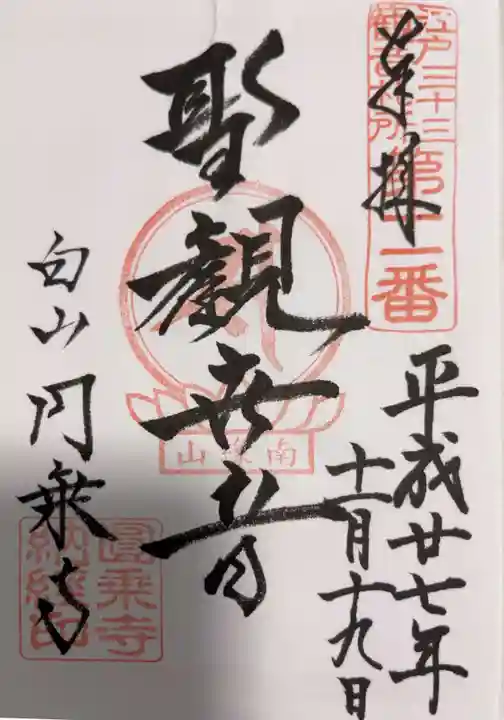 奉拝
江戸三十三
観音札所
第十一番
平成廿七年
十一月十九日
聖観世音
南縁山
白山 円乗寺
圓乗寺
納経印